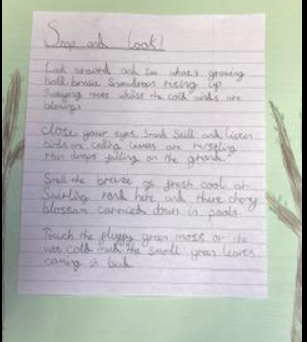 Stop and Look!
Look around and see what's growing
bold brave Snowdrops rising up
Swaying trees whilst the cold winds are
blowing.
Close your eyes, Stand Still and listen
birds are calling leaves are rustling
rain drops falling on the ground.
Smell the breeze of fresh cool air
Swirling round here and there chery
blossom carried down in pools.
Touch the fluffy green moss or the
wet cold the small green leaves
coming in bud.